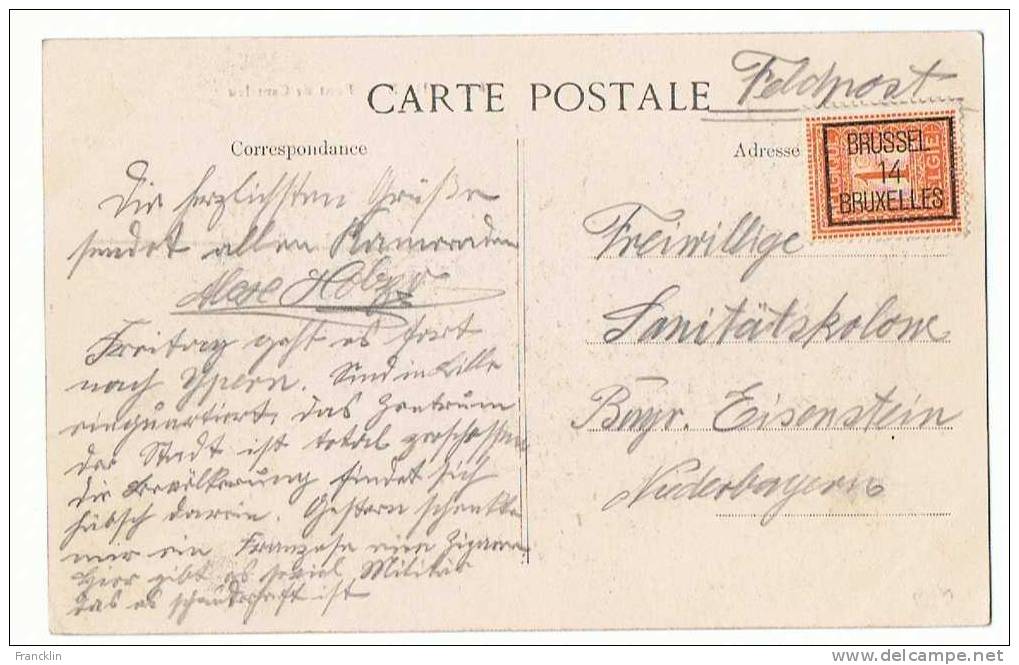 Feldpost
CARTE POSTALE
Correspondance
Adresse
BELGIQUE
1
BELGIË
BRUSSEL
14
BRUXELLES
Die herzlichsten Grüße
sendet allen Kameraden
Freitag geht es fort
nach Ypern. Sind in Lille
einquartiert, das Zentrum
der Stadt ist total zerschossen
die Bevölkerung findet sich
hübsch darein. Gestern schenkte
mir ein Franzose eine Zigarre
Hier gibt es soviel Militär
das es schauderhaft ist
Freiwillige
Sanitätskolone
Bayr. Eisenstein
Niederbayern
Francklin
www.delcampe.net